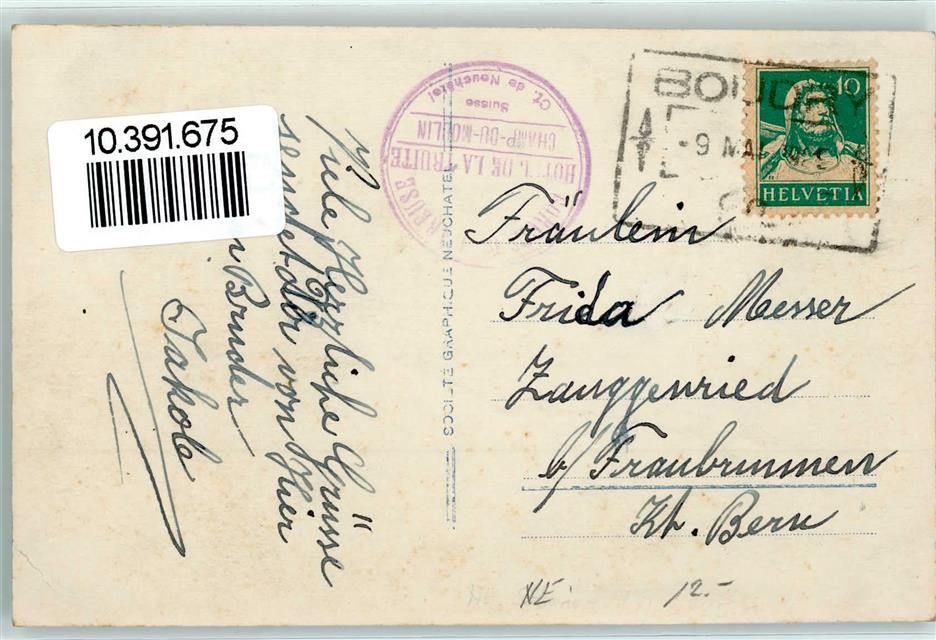 10.391.675
Viele Herzliche Grüsse
sendet Dir von Hier
n Bruder
Jakob
SOCIÉTÉ GRAPHIQUE NEUCHATEL
HOTEL DE LA TRUITE
CHAMP-DU-MOULIN
Suisse
Ct. de Neuchâtel
REUSE
BOUDRY
-9 MA
10
HELVETIA
Fräulein
Frida Messer
Zauggenried
b/ Fraubrunnen
Kt. Bern
NE
12.-